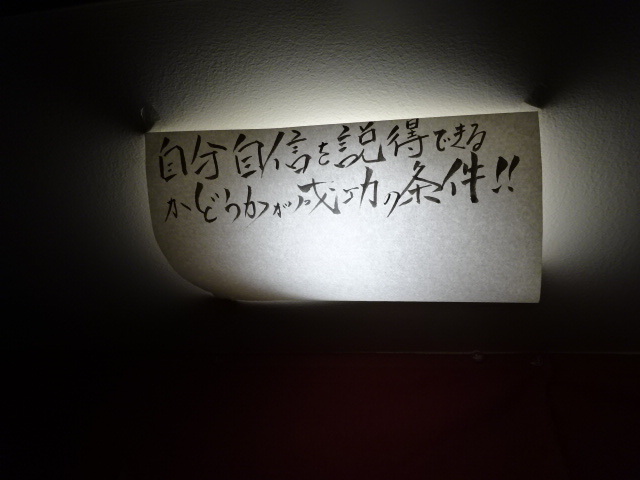 自分自信を説得できる
かどうかが成功の条件!!